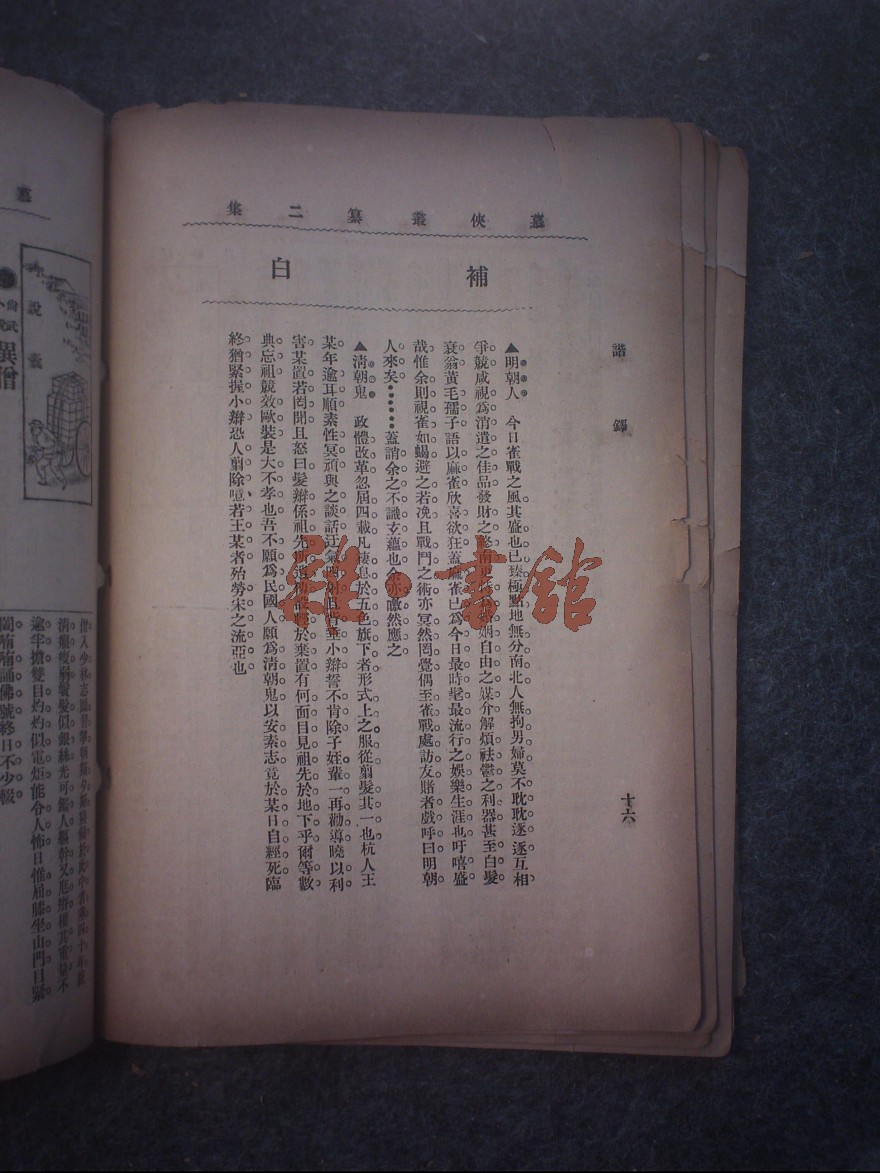 慕俠叢纂二集
諧鐸
十六
補白
▲明朝人　今日雀戰之風其盛也已臻極點地無分南北人無拘男婦莫不耽耽逐逐互相
爭競咸視爲消遣之佳品發財之 自由之媒介解煩祛鬱之利器甚至白髮
衰翁黃毛孺子語以麻雀欣喜欲狂蓋麻雀已爲今日最時髦最流行之娛樂生涯也吁嘻盛
哉惟余則視雀如蝎避之若浼且戰鬥之術亦冥然罔覺偶至雀戰處訪友賭者戲呼曰明朝
人來矣⋯⋯蓋誚余之不識玄蘊也余亦噭然應之
▲清朝鬼　政體改革忽屆四載凡棲息於五色旗下者形式上之服從翦髮其一也杭人王
某年逾耳順素性冥頑與之談話迂氣 小辮誓不肯除子姪輩一再勸導曉以利
害某置若罔聞且怒曰髮辮係祖先所遺 於棄置有何面目見祖先於地下乎爾等數
典忘祖競效歐裝是大不孝也吾不願爲民國人願爲清朝鬼以安素志竟於某日自經死臨
終猶緊握小辮恐人翦除噫若王某者殆勞宋之流亞也
雞·書館
慕
說叢
尚武
小說
異僧
逾牛擔雙目灼灼似電炬能令人怖日惟屈膝坐山門口緊
閣喃喃誦佛號終日不少輟